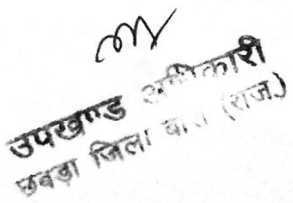 उपखण्ड अधिकारी
छबड़ा जिला बारां (राज.)